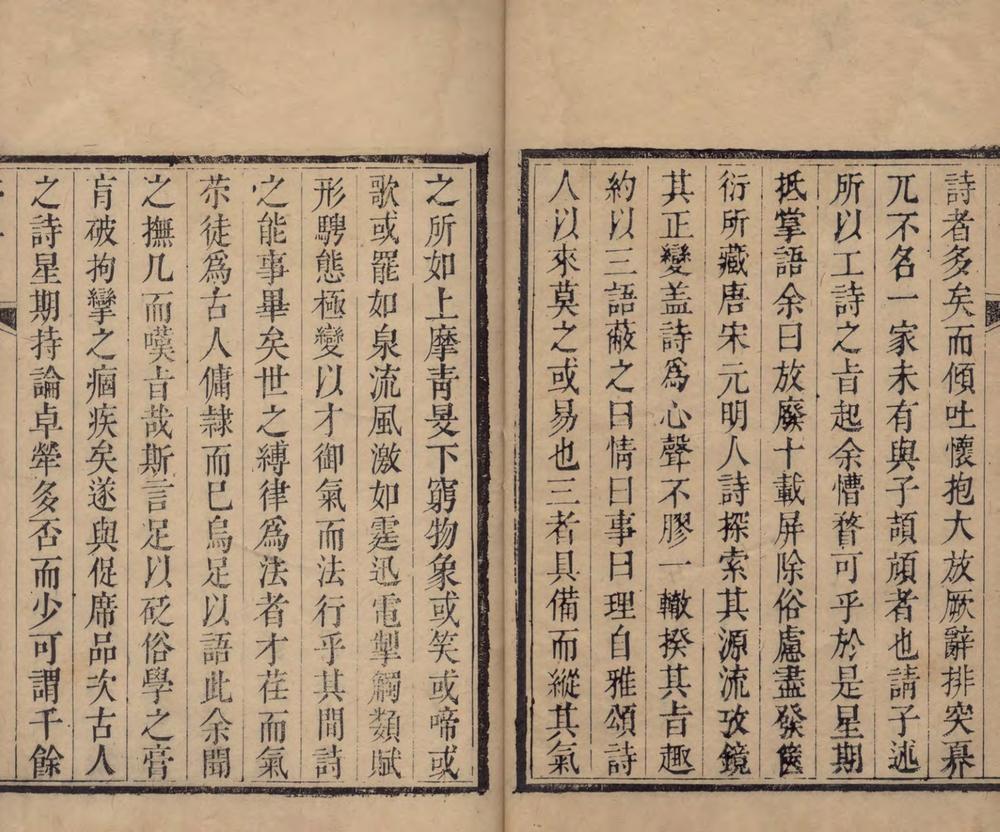 詩者多矣而傾吐懷抱大放厥辭排突幕
兀不名一家未有與子頡頏者也請子述
所以工詩之㫖起余懵瞀可乎於是星期
抵掌語余曰放廢十載屏除俗慮盡發篋
衍所藏唐宋元明人詩探索其源流攷鏡
其正變盖詩為心聲不膠一轍揆其㫖趣
約以三語蔽之曰情曰事曰理自雅頌詩
人以來莫之或易也三者具備而縱其氣
之所如上摩青旻下窮物象或笑或啼或
歌或罷如泉流風激如霆迅電掣觸類賦
形騁態極變以才御氣而法行乎其間詩
之能事畢矣世之縛律為法者才荏而氣
苶徒為古人傭隷而已烏足以語此余聞
之撫几而嘆㫖哉斯言足以砭俗學之膏
肓破拘攣之痼疾矣遂與促席品次古人
之詩星期持論卓犖多否而少可謂千餘